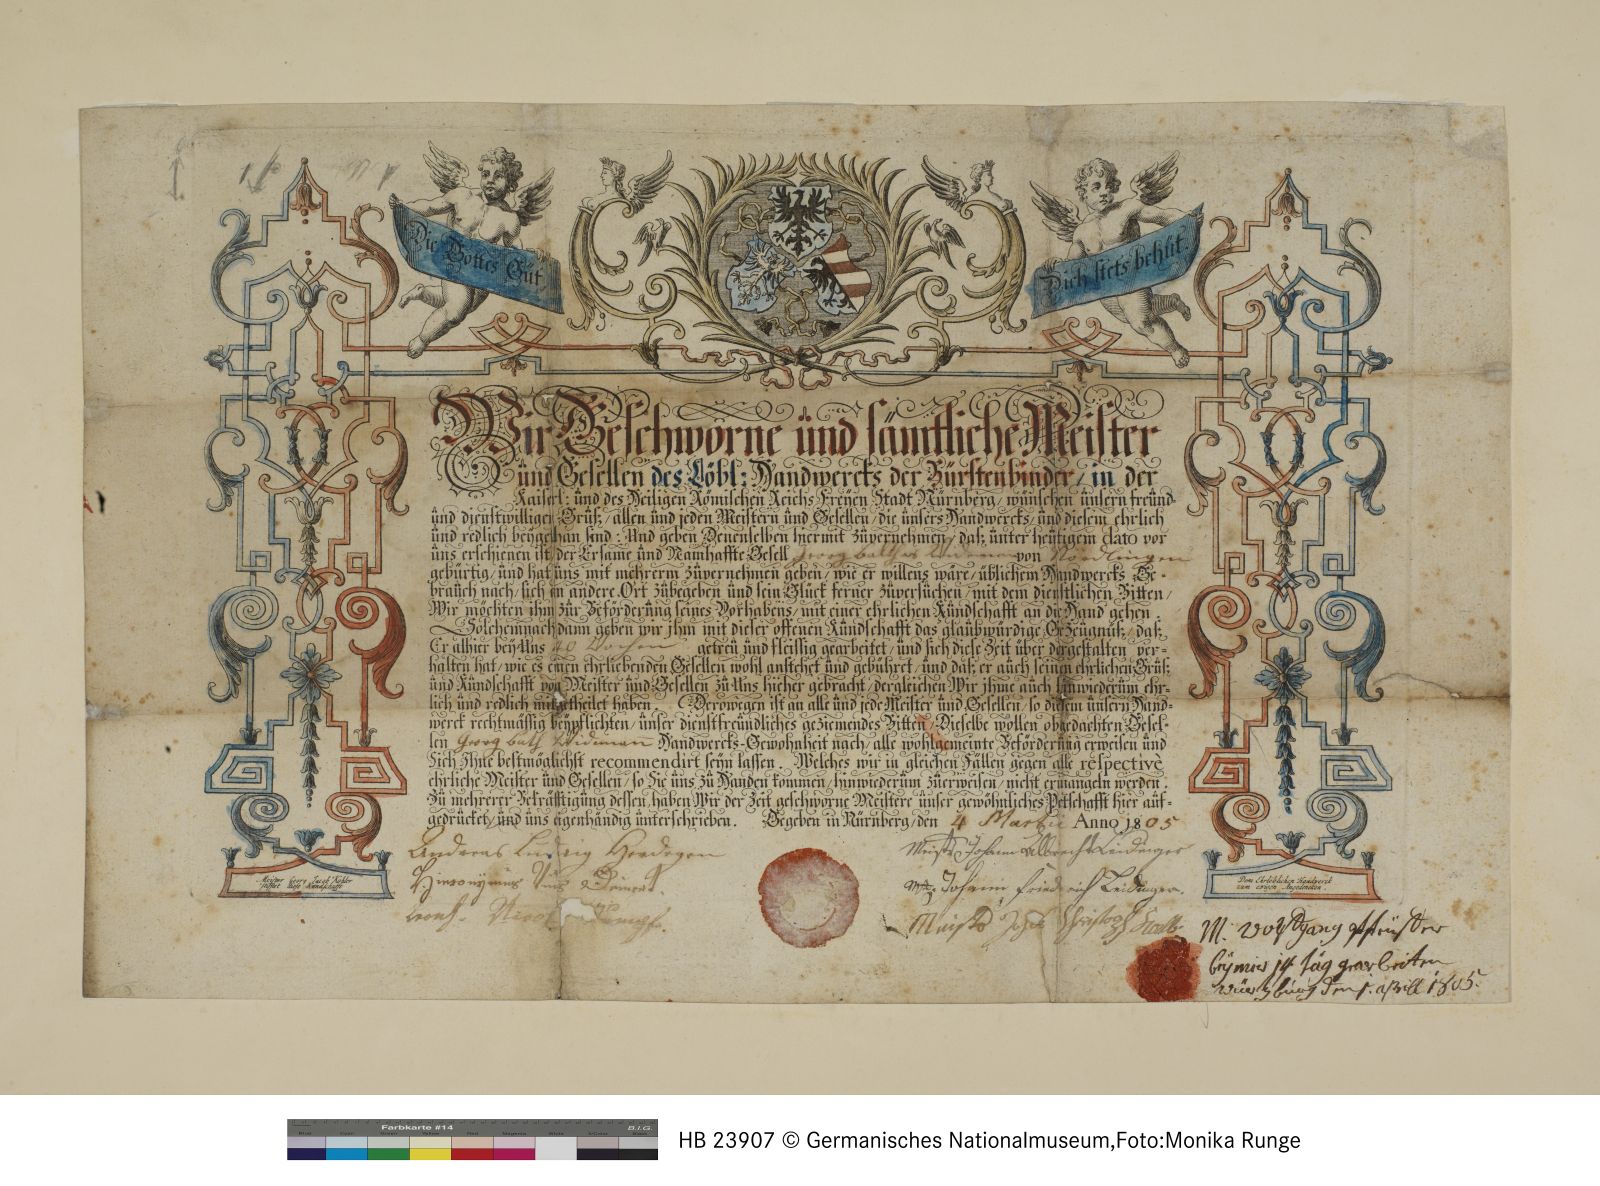 Die Gottes Güt
Dich stets behüt.
Wir Geschworne und sämtliche Meister
und Gesellen des Löbl: Handwercks der Bürstenbinder / in der
Kaiserl: und des Heiligen Römischen Reichs Freÿen Stadt Nürnberg / wünschen unsern freünd-
und dienstwilligen Gruß / allen und jeden Meistern und Gesellen / die unsers Handwercks / und diesem ehrlich
und redlich beÿgethan sind: Und geben Denenselben hiermit zuvernehmen / daß unter heutigem dato vor
uns erschienen ist der Ersame und Mannhaffte Gesell Georg Wideman von Nördlingen
gebürtig / und hat uns mit mehrerm zuvernehmen geben / wie er willens wäre / üblichem Handwercks Ge-
brauch nach / sich an andere Ort zubegeben und sein Glück ferner zuversuchen / mit dem dienstlichen Bitten /
Wir möchten ihm zur Beförderung seines Vorhabens / mit einer ehrlichen Kundschafft an die Hand gehen.
Solchemnach dann geben wir jhm mit dieser offenen Kundschafft das glaubwürdige Gezeugnüß / daß
Er alhier beÿ Uns 40 Wochen getreu und fleissig gearbeitet / und sich diese Zeit über dergestalten ver-
halten hat / wie es einen ehrliebenden Gesellen wohl anstehet und gebühret / und daß er auch seinen ehrlichen Gruß
und Kundschafft von Meister und Gesellen zu Uns hieher gebracht / dergleichen Wir jhme auch hinwiederum ehr-
lich und redlich mitgetheilet haben. Derowegen ist an alle und jede Meister und Gesellen / so diesem unsern Hand-
werck rechtmässig beÿpflichten / unser dienstfreundliches geziemendes Bitten / Dieselbe wollen obgedachten Gesel-
len Georg Balth Widemann Handwercks-Gewohnheit nach / alle wohlgemeinte Beförderung erweisen und
Sich Jhne bestmöglichst recommendirt seÿn lassen. Welches wir in gleichen Fällen gegen alle respective
ehrliche Meister und Gesellen / so Sie uns zu Handen kommen / hinwiederum zuerweisen / nicht ermangeln werden.
Zu mehrerer Bekräfftigung dessen haben Wir der Zeit geschworne Meistere unser gewöhnliches Petschafft hier auf-
gedrücket / und uns eigenhändig unterschrieben. Gegeben in Nürnberg / den 4 Martii Anno 1805
Andreas Ludwig Herdegen
Hieronÿmus
Meister Johann Albrecht Leidinger
Mstr. Johann Friedrich Leidinger.
Meister Christoph
Meister Georg Jacob Kohler
stifftet diese Kundschafft
Dem Ehrlöblichen Handwerck
zum ewigen Angedencken.
M. Wolfgang
beÿ mir 14 tag gearbeitet
Würzburg den 1. aprill 1805.
Farbkarte #14
B.I.G.
HB 23907 © Germanisches Nationalmuseum,Foto:Monika Runge